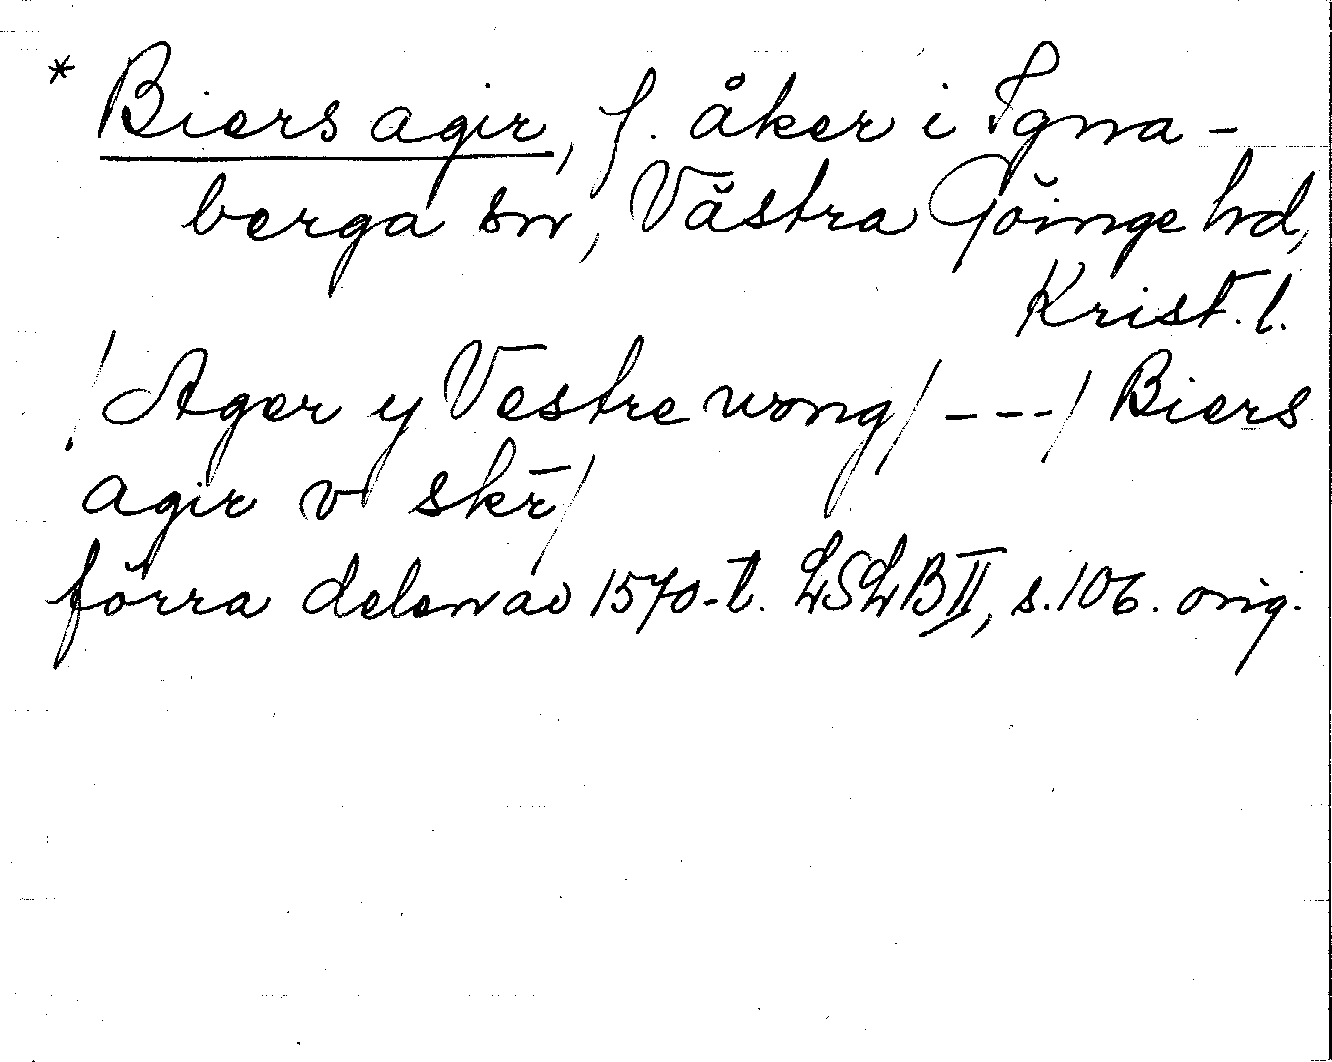 * Biers agir, f. åker i Igna-
berga sn, Västra Göinge hd,
Krist. l.
/Ager y Vestre wong/ --- / Biers
agir v skr̄/
förra delen av 1570-t. LSLB II, s. 106. orig.